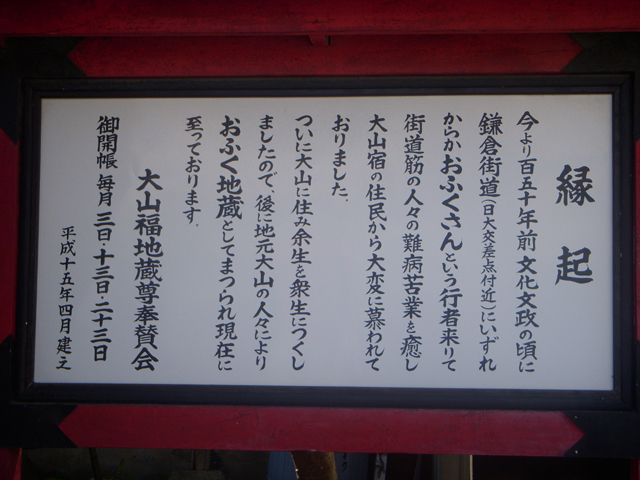 縁起
今より百五十年前文化文政の頃に
鎌倉街道(日大交差点付近)にいずれ
からかおふくさんという行者来りて
街道筋の人々の難病苦業を癒し
大山宿の住民から大変に慕われて
おりました.
ついに大山に住み余生を衆生につくし
ましたので、後に地元大山の人々により
おふく地蔵としてまつられ現在に
至っております.
大山福地蔵尊奉賛会
御開帳 毎月 三日・十三日・二十三日
平成十五年四月 建之